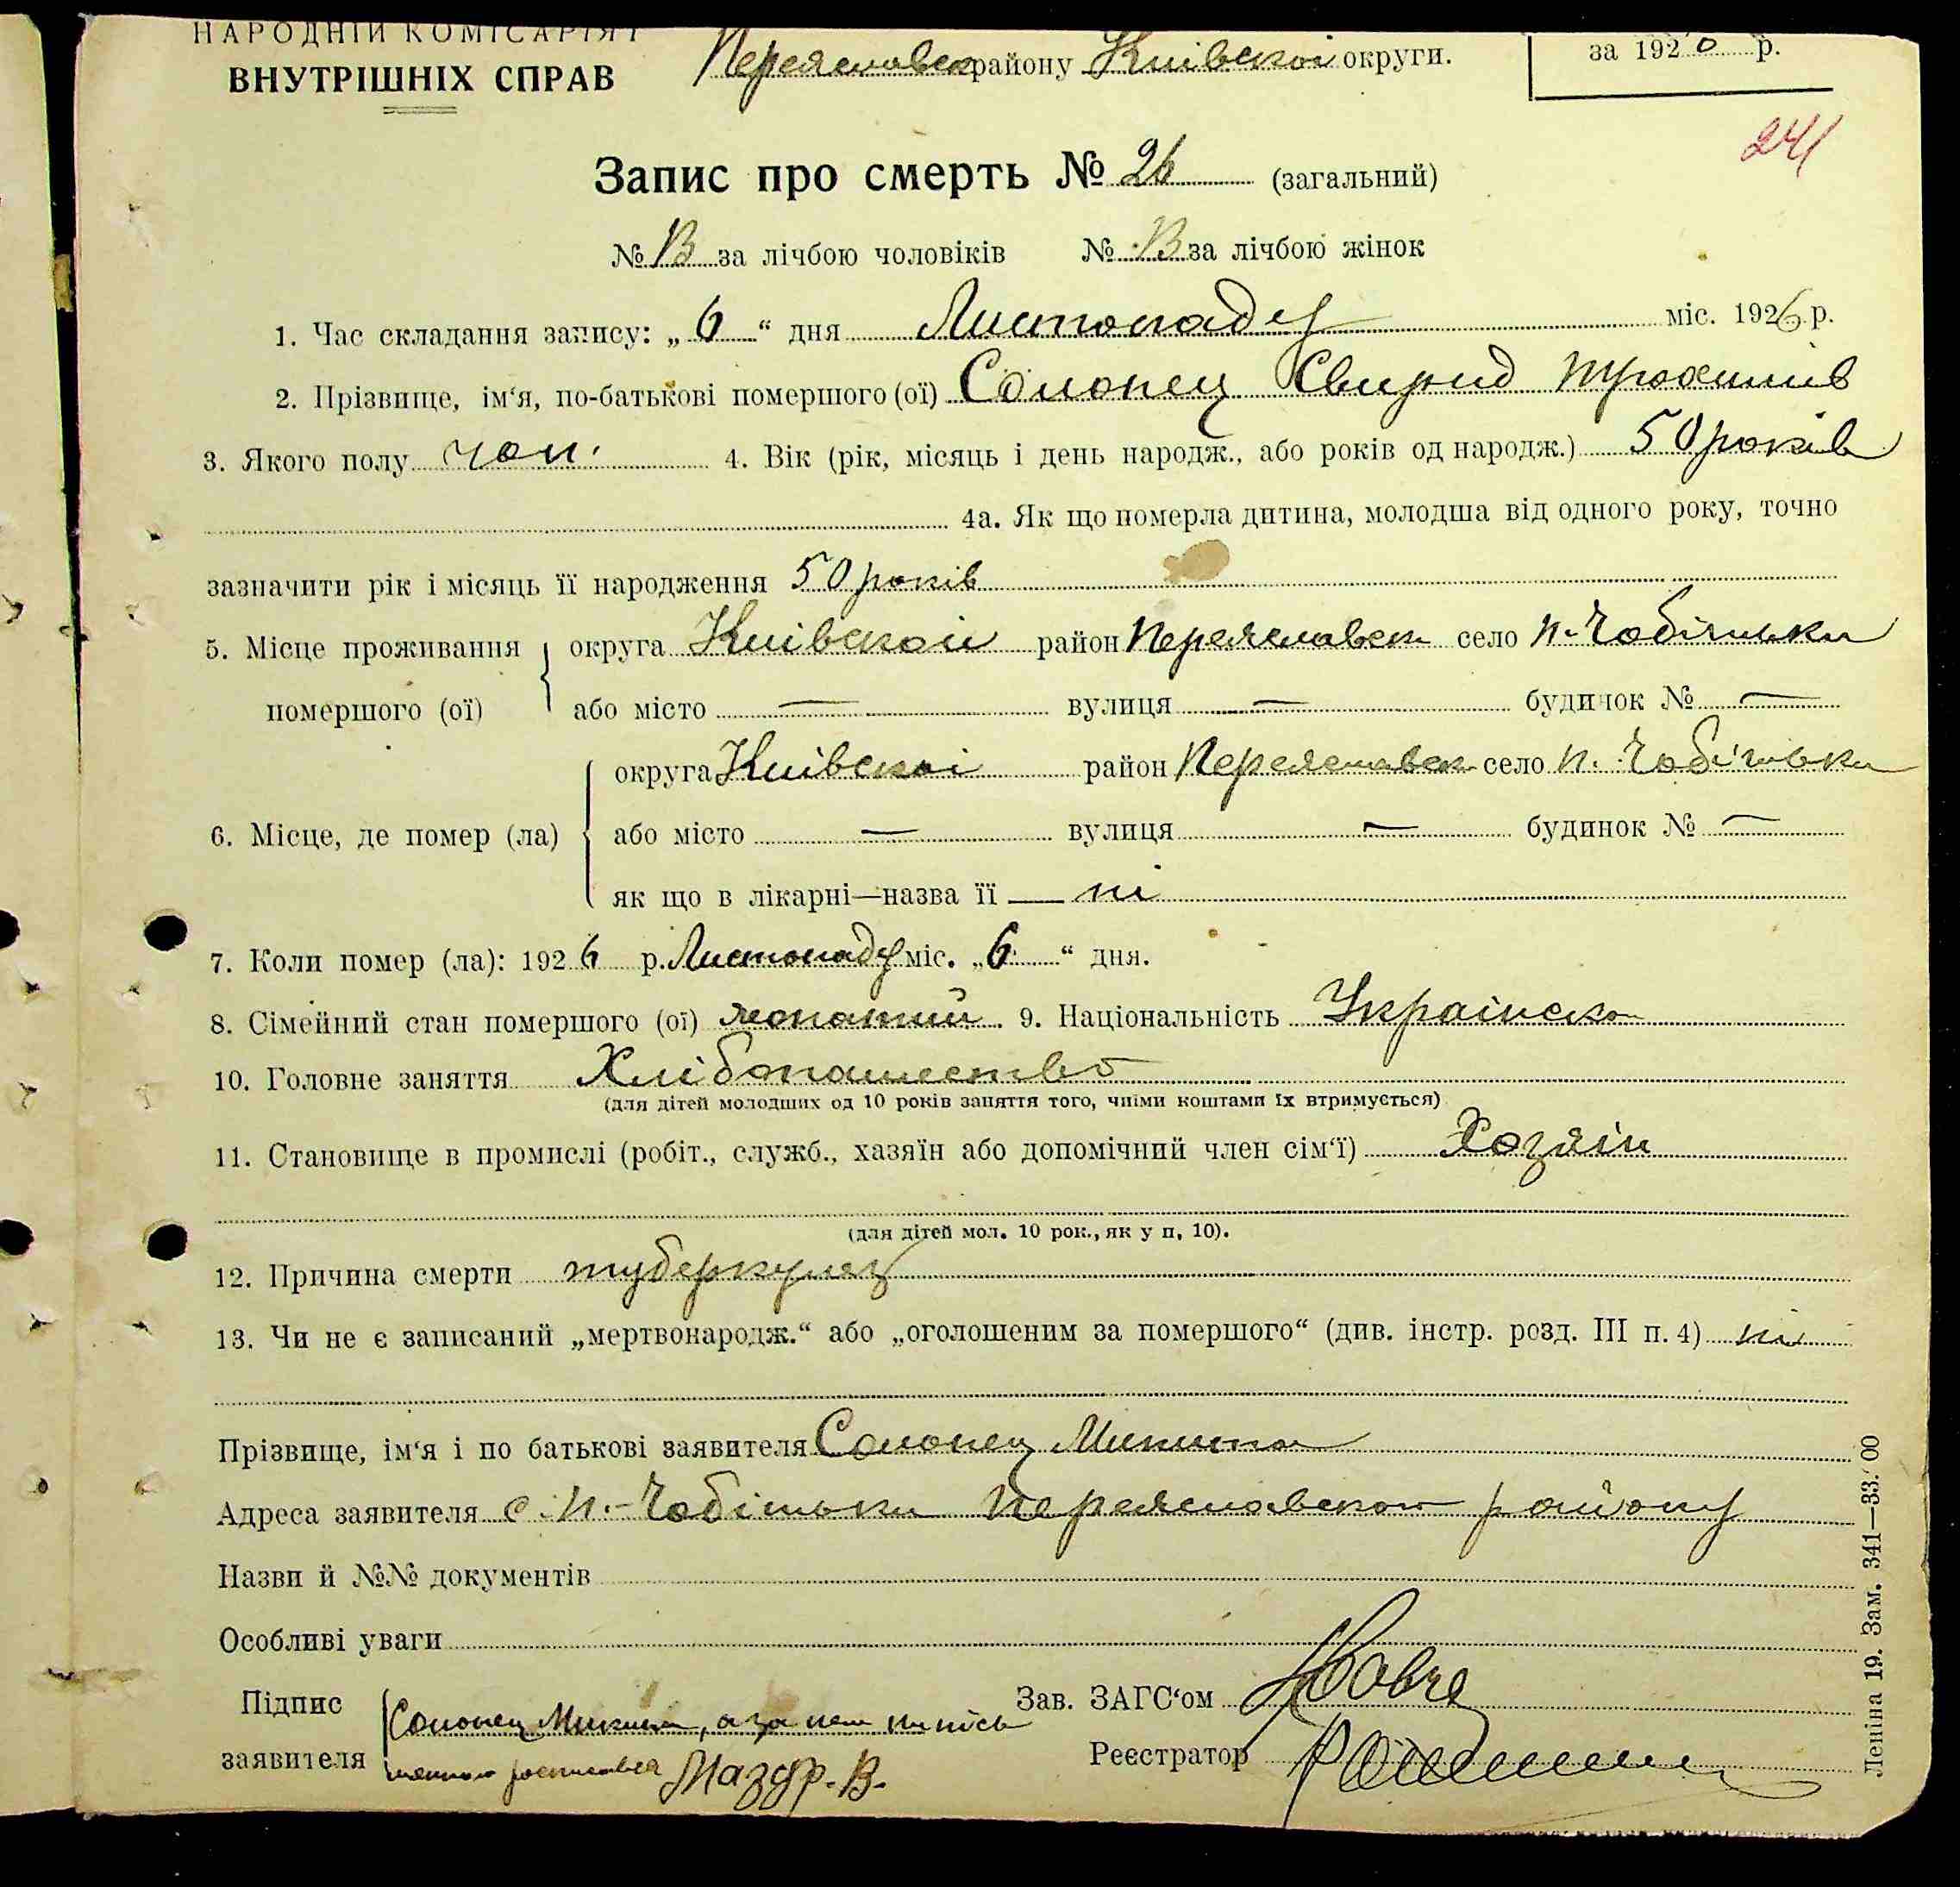 НАРОДНІЙ КОМІСАРІЯТ
ВНУТРІШНІХ СПРАВ
Переяславск району Київскоі округи.
за 1926 р.
241
Запис про смерть № 26 (загальний)
№ 13 за лічбою чоловіків № 13 за лічбою жінок
1. Час складання запису: „6“ дня Листопаду міс. 1926 р.
2. Прізвище, ім‘я, по-батькові помершого (ої) Солонец Свирид Трохимів
3. Якого полу чол. 4. Вік (рік, місяць і день народж., або років од народж.) 50 років
4а. Як що померла дитина, молодша від одного року, точно
зазначити рік і місяць її народження 50 років
5. Місце проживання округа Київскоі район Переяславск село п.-Чобітьки
помершого (ої) або місто — вулиця — будинок № —
округа Київскоі район Переяславск село п. Чобітьки
6. Місце, де помер (ла) або місто — вулиця — будинок № —
як що в лікарні—назва її — ні
7. Коли помер (ла): 1926 р. Листопаду міс. „6“ дня.
8. Сімейний стан помершого (ої) жонатий 9. Національність Украінска
10. Головне заняття Хлібопашество
(для дітей молодших од 10 років заняття того, чиїми коштами їх втримується)
11. Становище в промислі (робіт., служб., хазяїн або допомічний член сім‘ї) Хозяін
(для дітей мол. 10 рок., як у п. 10).
12. Причина смерти туберкульоз
13. Чи не є записаний „мертвонародж.“ або „оголошеним за помершого“ (див. інстр. розд. III п. 4) ні
Прізвище, ім‘я і по батькові заявителя Солонец Микита
Адреса заявителя с. п.-Чобітьки Переяславского району
Назви й №№ документів
Особливі уваги
Підпис Солонец Микита, а за него
заявителя росписався Мазур. В.
Зав. ЗАГС‘ом
Реєстратор
Леніна 19. Зам. 341—33.000